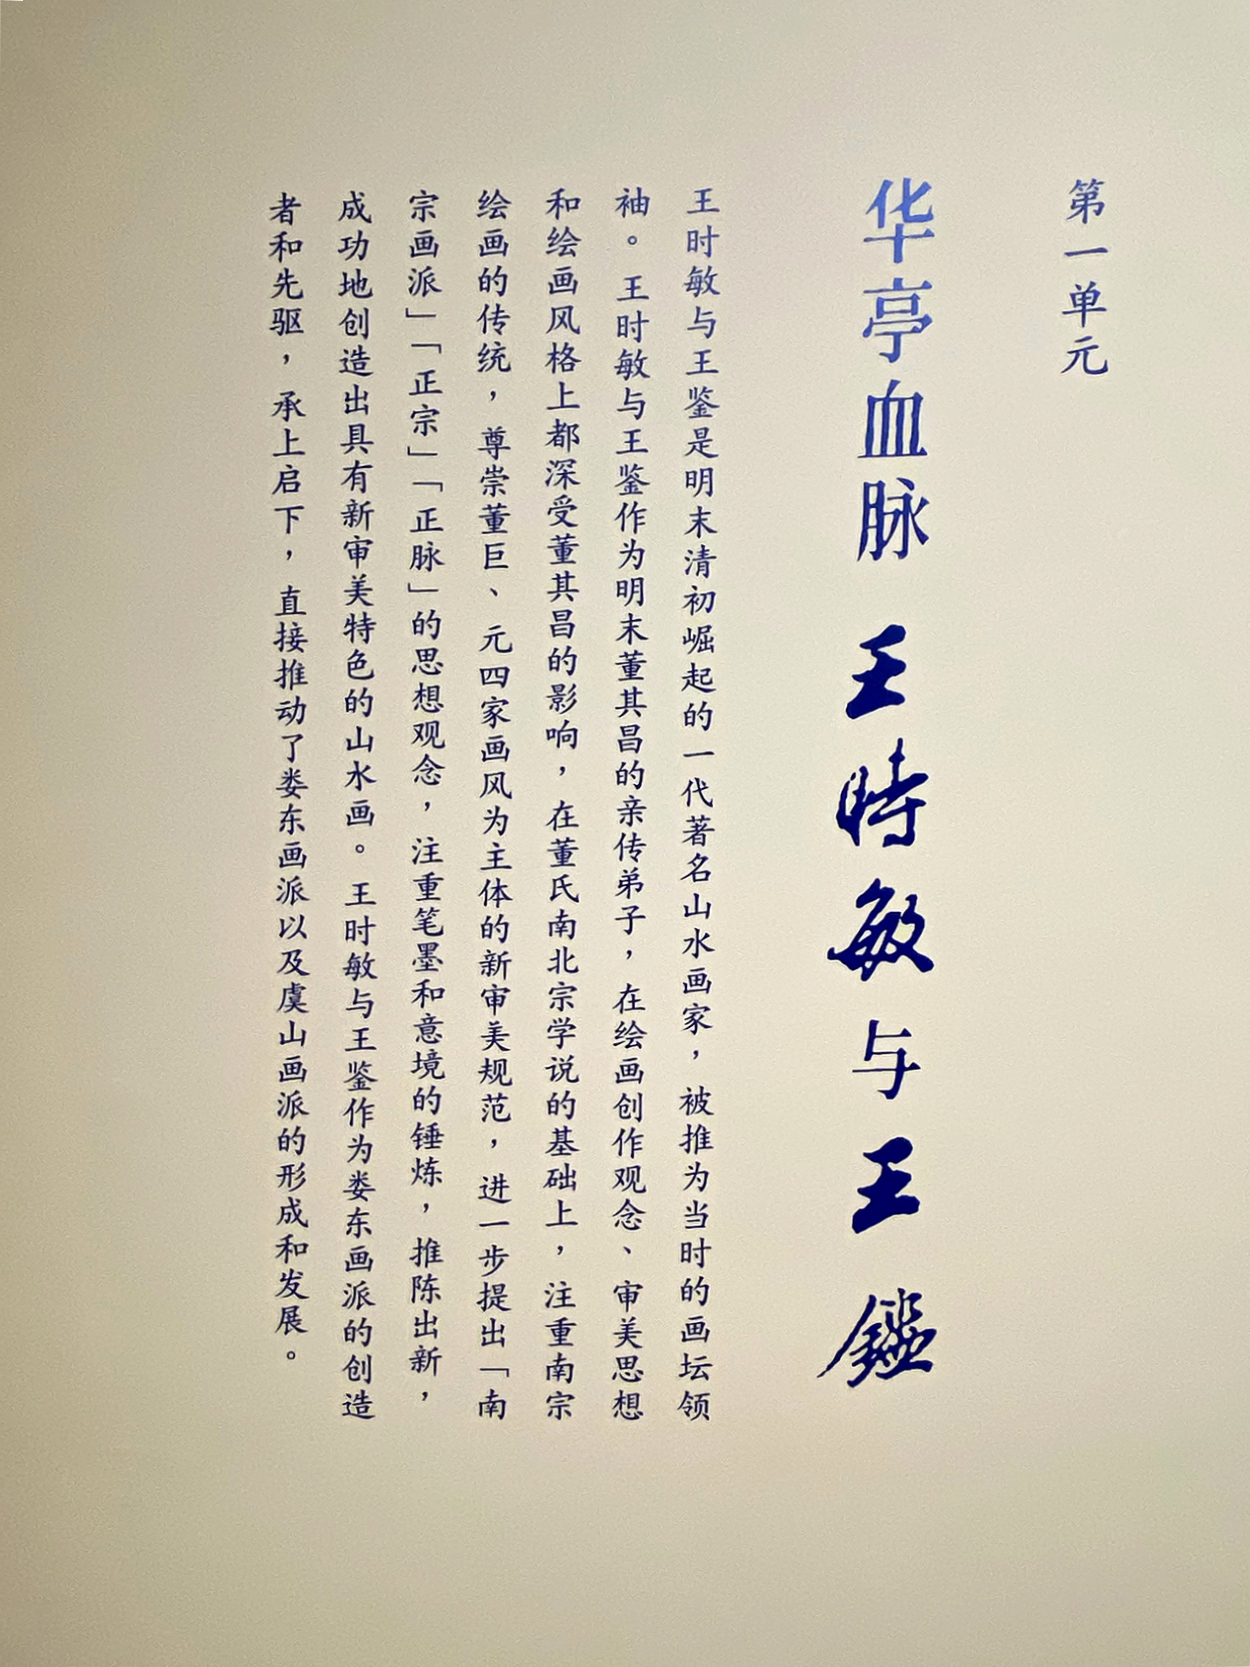 第一单元
华亭血脉 王時敏与王鑑
王时敏与王鉴是明末清初崛起的一代著名山水画家，被推为当时的画坛领
袖。王时敏与王鉴作为明末董其昌的亲传弟子，在绘画创作观念、审美思想
和绘画风格上都深受董其昌的影响，在董氏南北宗学说的基础上，注重南宗
绘画的传统，尊崇董巨、元四家画风为主体的新审美规范，进一步提出「南
宗画派」「正宗」「正脉」的思想观念，注重笔墨和意境的锤炼，推陈出新，
成功地创造出具有新审美特色的山水画。王时敏与王鉴作为娄东画派的创造
者和先驱，承上启下，直接推动了娄东画派以及虞山画派的形成和发展。